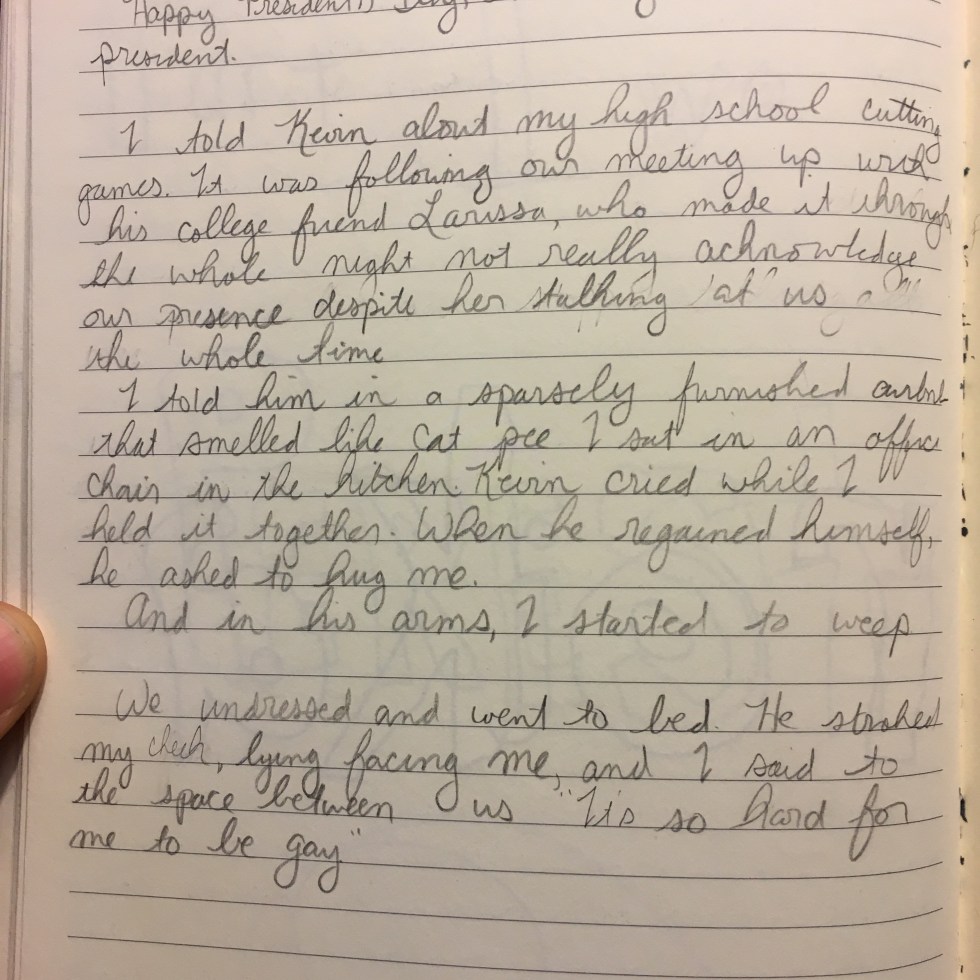 "Happy President's Day,
president.
I told Kevin about my high school cutting
games. It was following our meeting up with
his college friend Larissa, who made it through
the whole night not really acknowledge
our presence despite her talking "at" us
the whole time
I told him in a sparsely furnished airbnb
that smelled like cat pee I sat in an office
chair in the kitchen. Kevin cried while I
held it together. When he regained himself,
he asked to hug me.
And in his arms, I started to weep
We undressed and went to bed. He stroked
my cheek, lying facing me, and I said to
the space between us "It's so hard for
me to be gay"